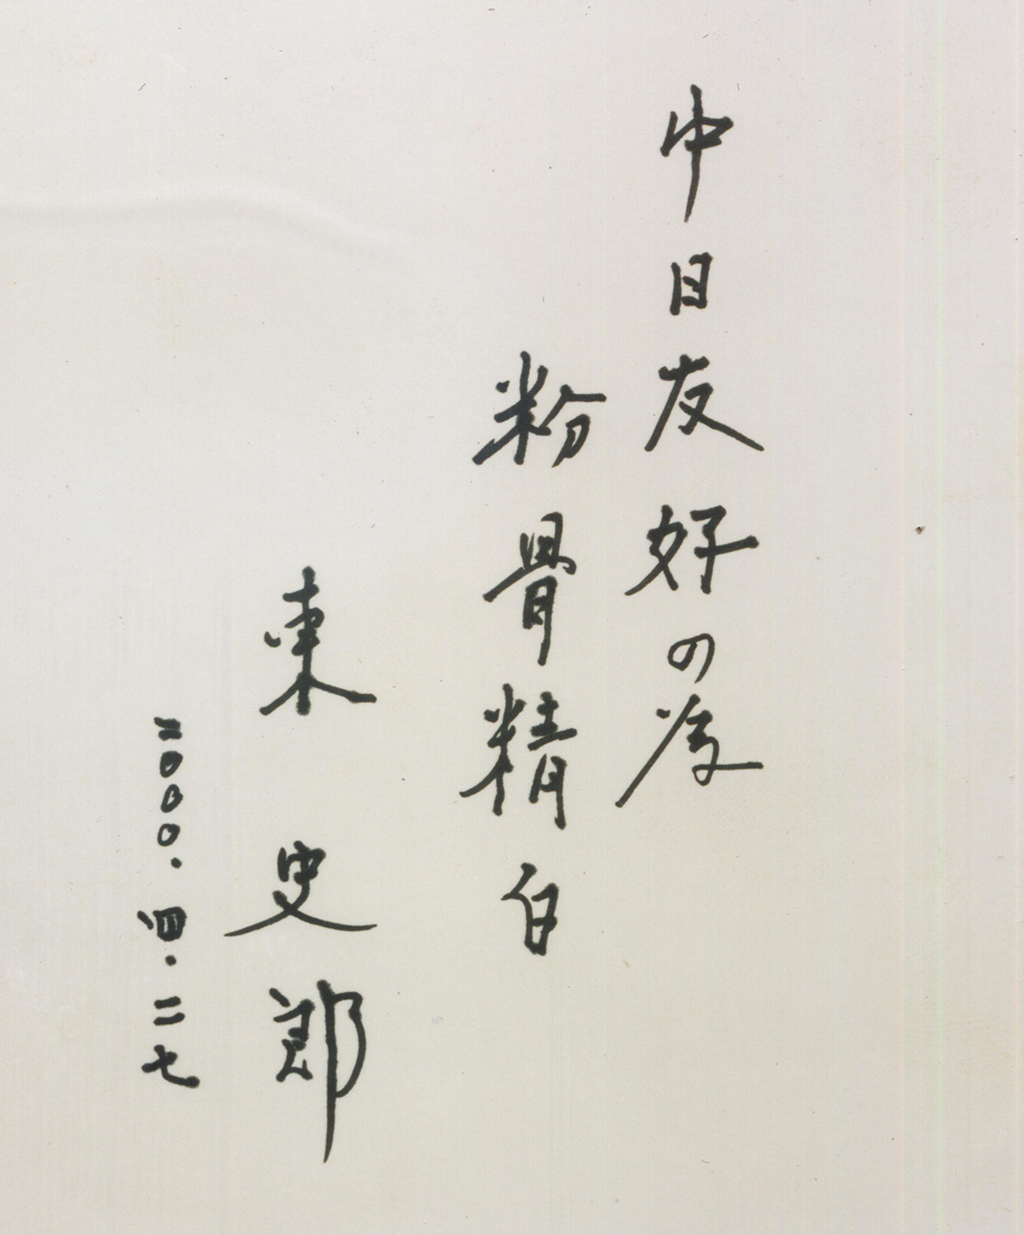 中日友好の為
粉骨精白
東史郎
二〇〇〇.四.二七